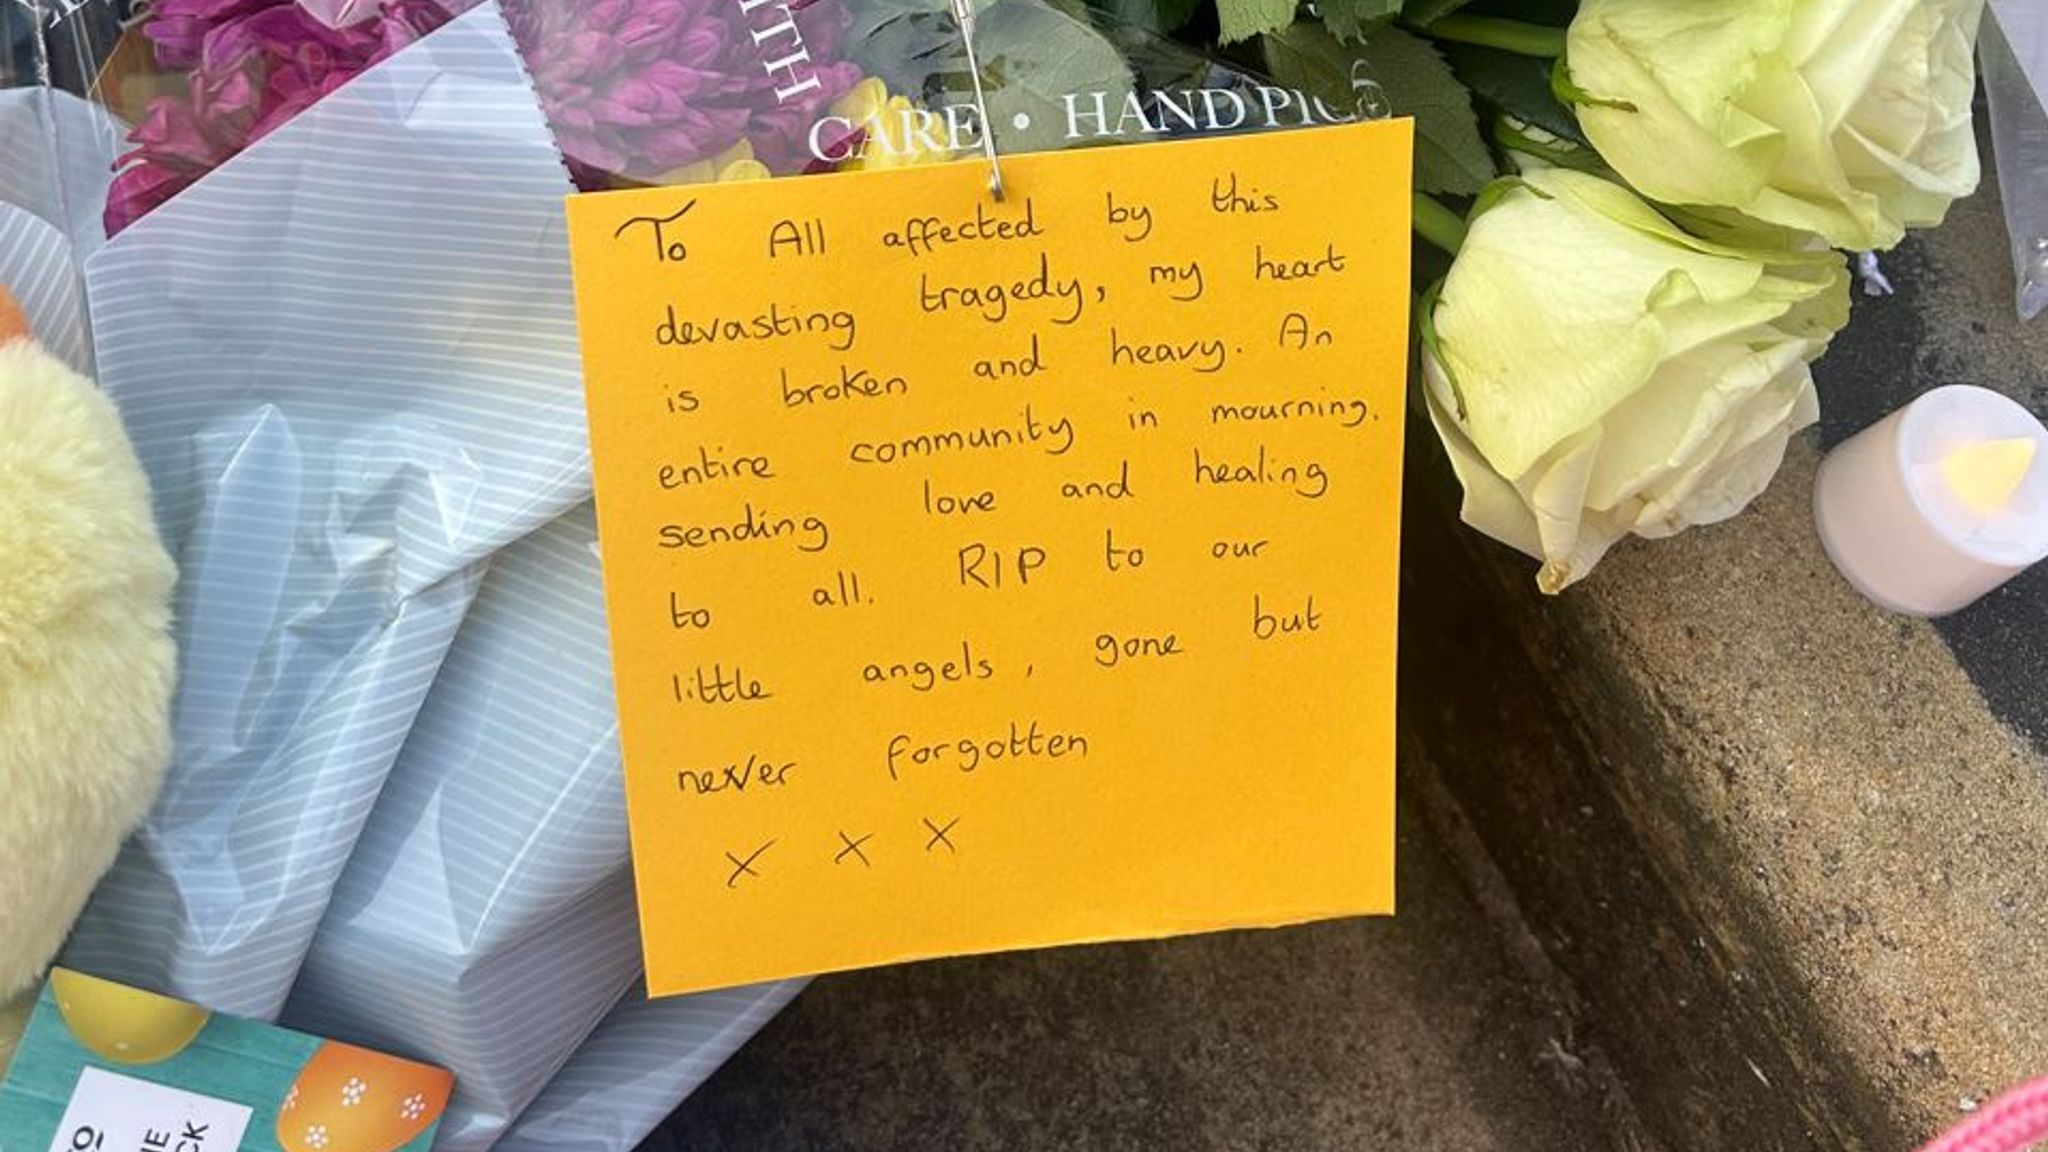 ITH
CARE • HAND PIC
To All affected by this
devasting tragedy, my heart
is broken and heavy. An
entire community in mourning.
sending love and healing
to all. RIP to our
little angels, gone but
never forgotten
x x x